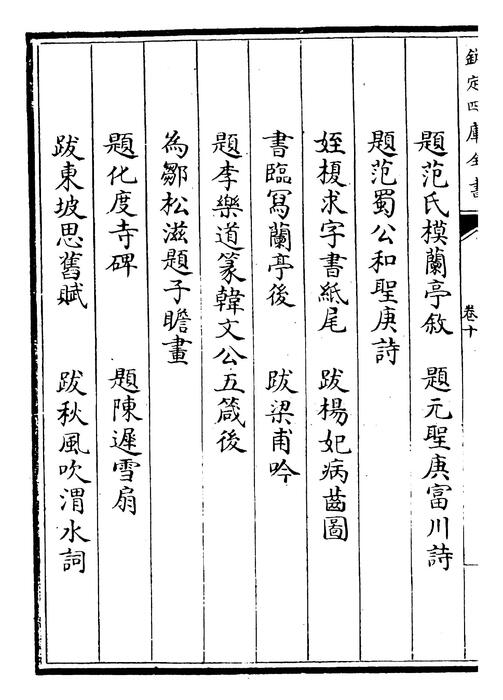 欽定四庫全書
卷十
題范氏模蘭亭敘　題元聖庚富川詩
題范蜀公和聖庚詩
姪榎求字書紙尾　跋楊妃病齒圖
書臨寫蘭亭後　跋梁甫吟
題李樂道篆韓文公五箴後
為鄒松滋題子瞻畫
題化度寺碑　題陳遲雪扇
跋東坡思舊賦　跋秋風吹渭水詞